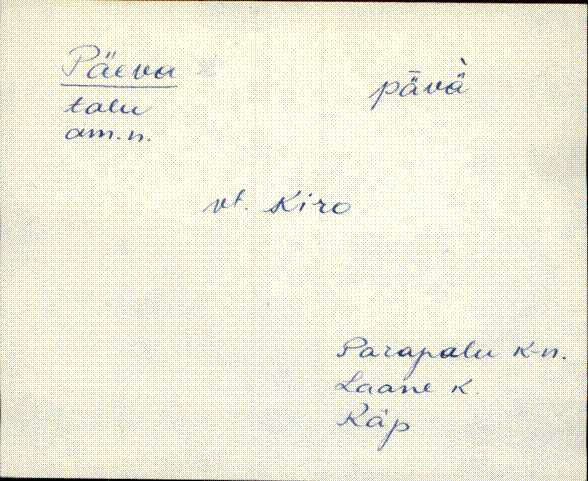 Päeva
talu
am.n.
pävä̀
vt. Kiro
Parapalu k-n.
Laane k
Käp